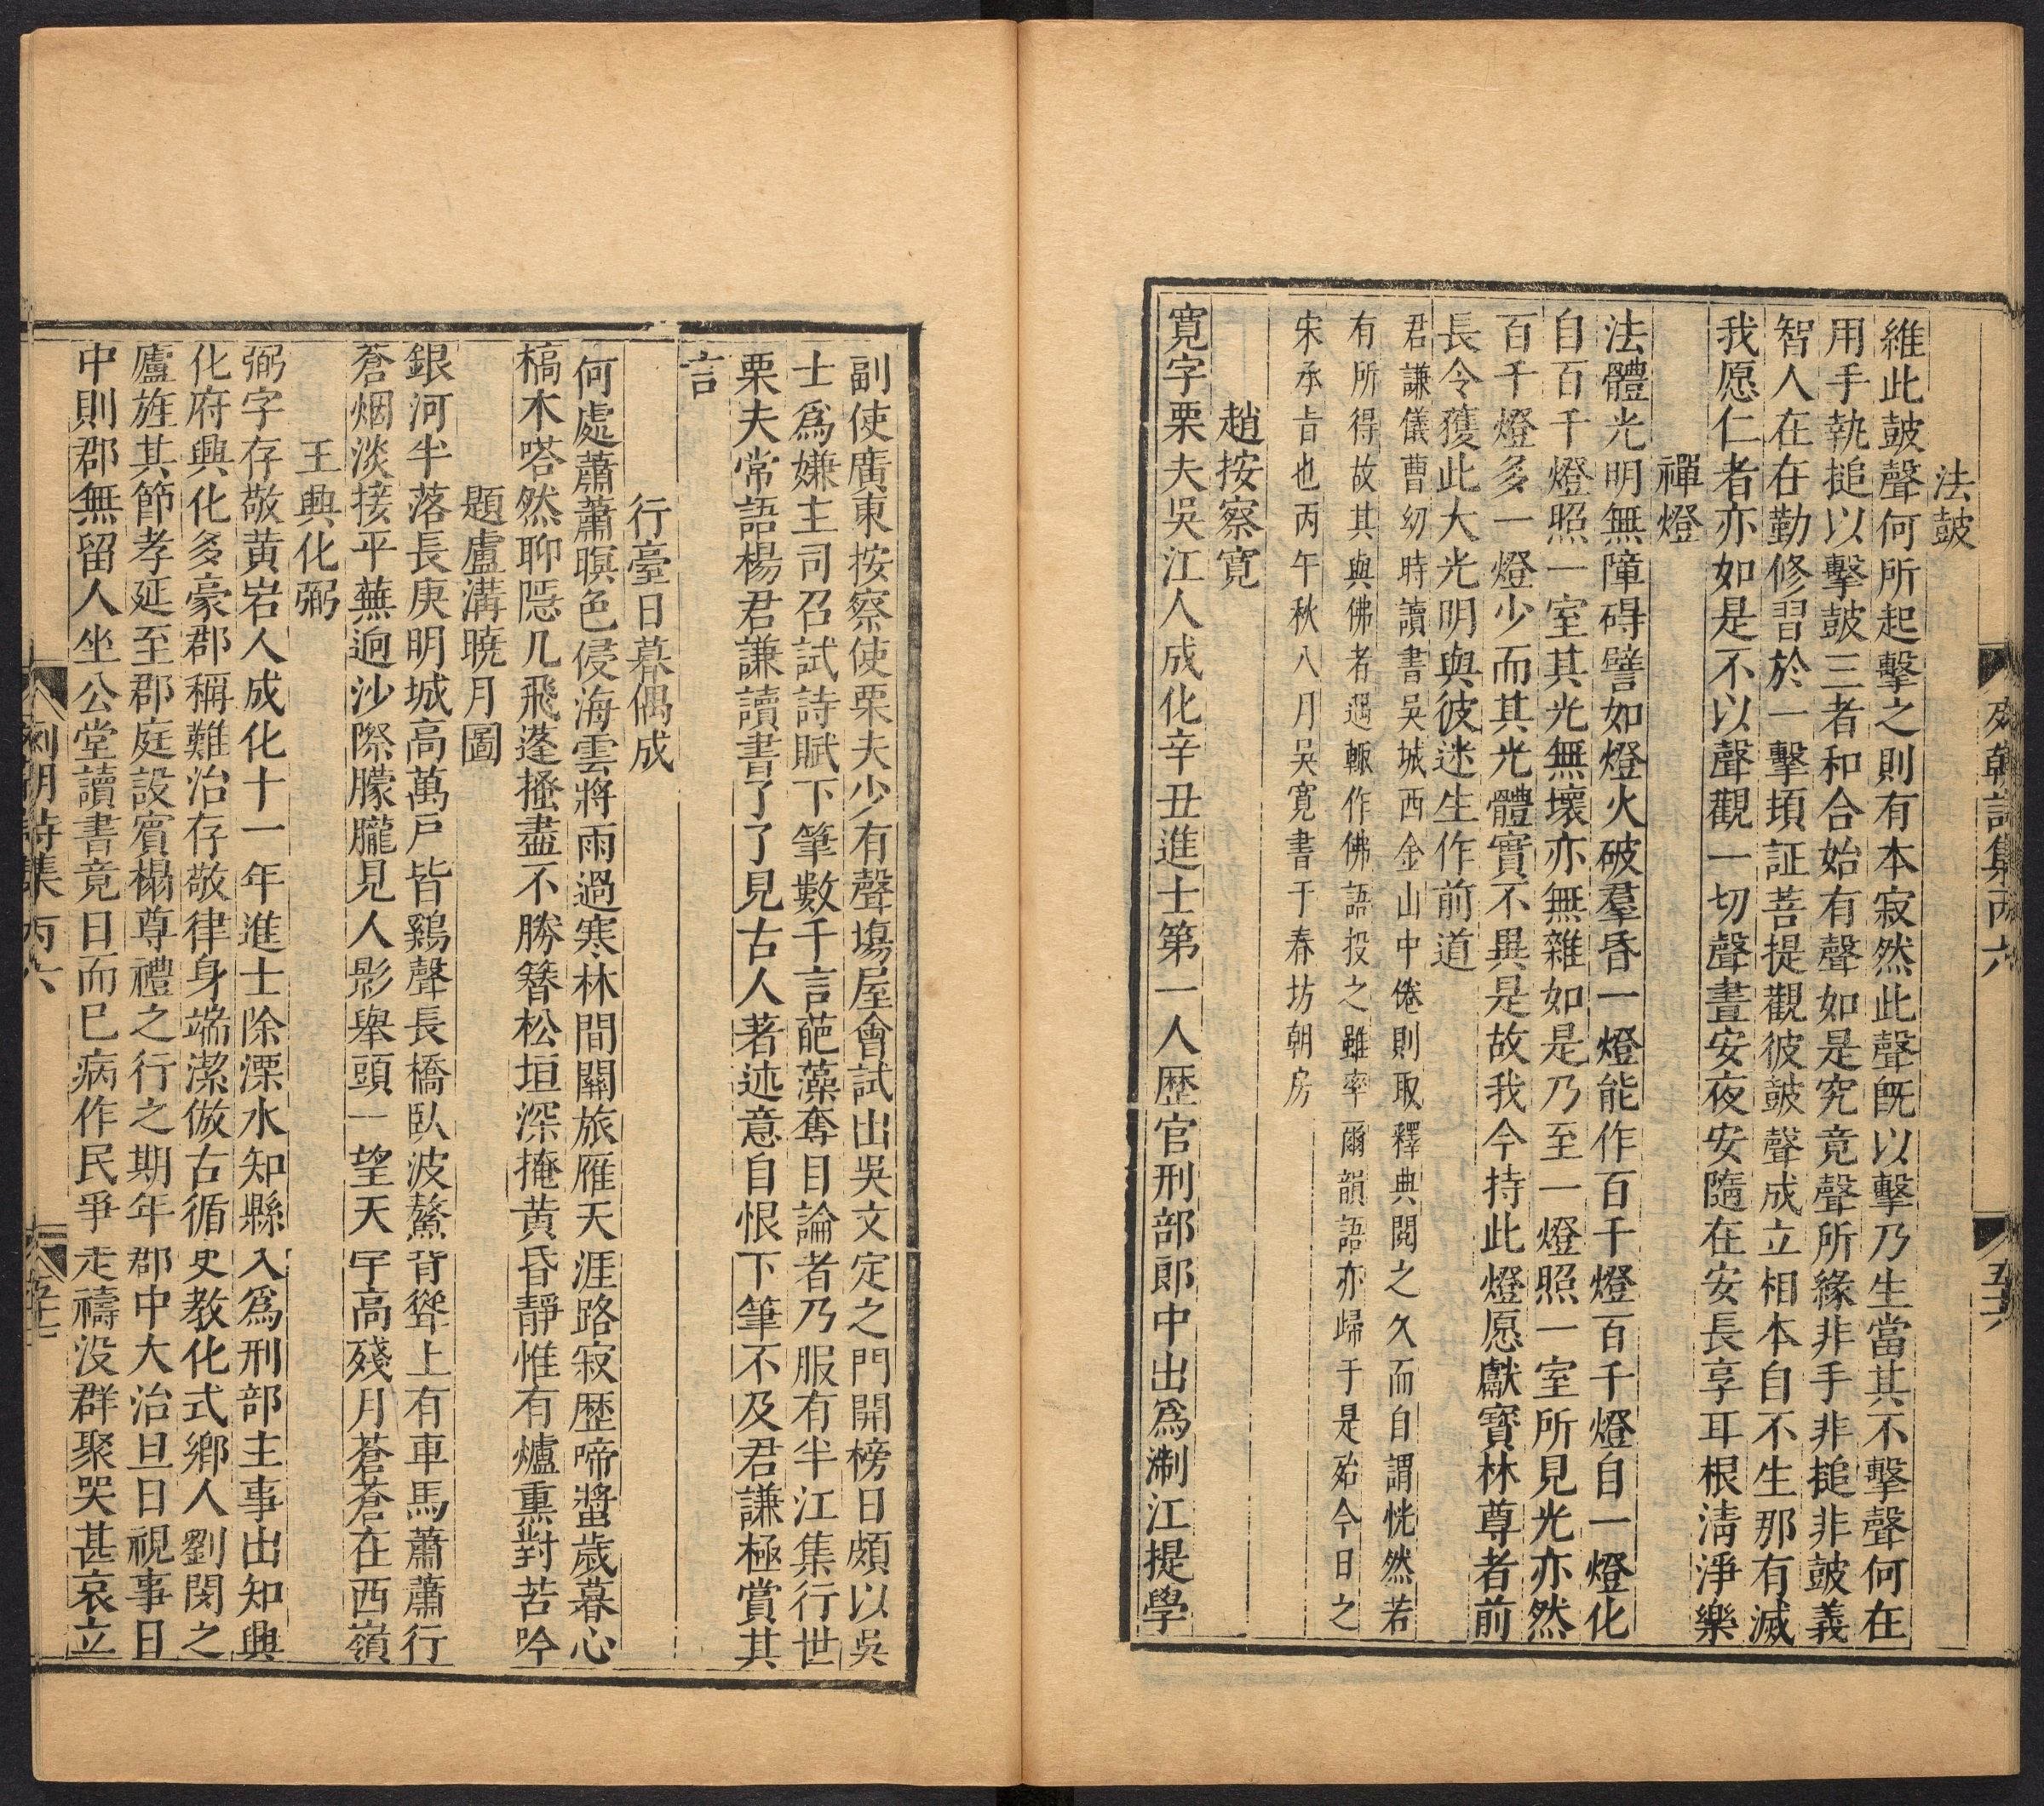 法鼓
維此鼓聲何所起擊之則有本寂然此聲旣以擊乃生當其不擊聲何在
用手執搥以擊鼓三者和合始有聲如是究竟聲所緣非手非搥非鼓義
智人在在勤修習於一擊頃証菩提觀彼鼓聲成立相本自不生那有滅
我愿仁者亦如是不以聲觀一切聲晝安夜安隨在安長享耳根淸淨樂
禪燈
法體光明無障碍譬如燈火破羣昏一燈能作百千燈百千燈自一燈化
自百千燈照一室其光無壞亦無雜如是乃至一燈照一室所見光亦然
百千燈多一燈少而其光體實不異是故我今持此燈愿獻寶林尊者前
長令獲此大光明與彼迷生作前道
君謙儀曹幼時讀書吳城西金山中倦則取釋典閱之久而自謂恍然若
有所得故其與佛者遇輒作佛語投之雖率爾韻語亦歸于是殆今日之
宋承旨也丙午秋八月吳寬書于春坊朝房
趙按察寬
寬字栗夫吳江人成化辛丑進士第一人歷官刑部郎中出爲淛江提學
列朝詩集丙六
五十六
副使廣東按察使栗夫少有聲塲屋會試出吳文定之門開榜日頗以吳
士爲嫌主司召試詩賦下筆數千言葩藻奪目論者乃服有半江集行世
栗夫常語楊君謙讀書了了見古人著述意自恨下筆不及君謙極賞其
言
行臺日暮偶成
何處蕭蕭暝色侵海雲將雨過寒林間關旅雁天涯路寂歷啼螿歲暮心
槁木嗒然聊隱几飛蓬搔盡不勝簪松垣深掩黄昏靜惟有爐熏對苦吟
題盧溝曉月圖
銀河半落長庚明城高萬戶皆鷄聲長橋臥波鰲背聳上有車馬蕭蕭行
蒼烟淡接平蕪逈沙際朦朧見人影舉頭一望天宇高殘月蒼蒼在西嶺
王興化弼
弼字存敬黄岩人成化十一年進士除溧水知縣入爲刑部主事出知興
化府興化多豪郡稱難治存敬律身端潔倣古循吏教化式鄉人劉閔之
廬旌其節孝延至郡庭設賓榻尊禮之行之期年郡中大治旦日視事日
中則郡無留人坐公堂讀書竟日而已病作民爭走禱没群聚哭甚哀立
列朝詩集丙六
五十七